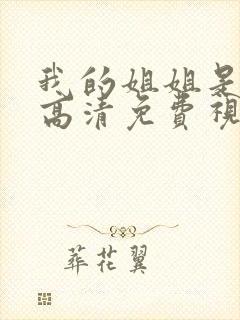 我的姐姐是
高清免費視
葬花翼